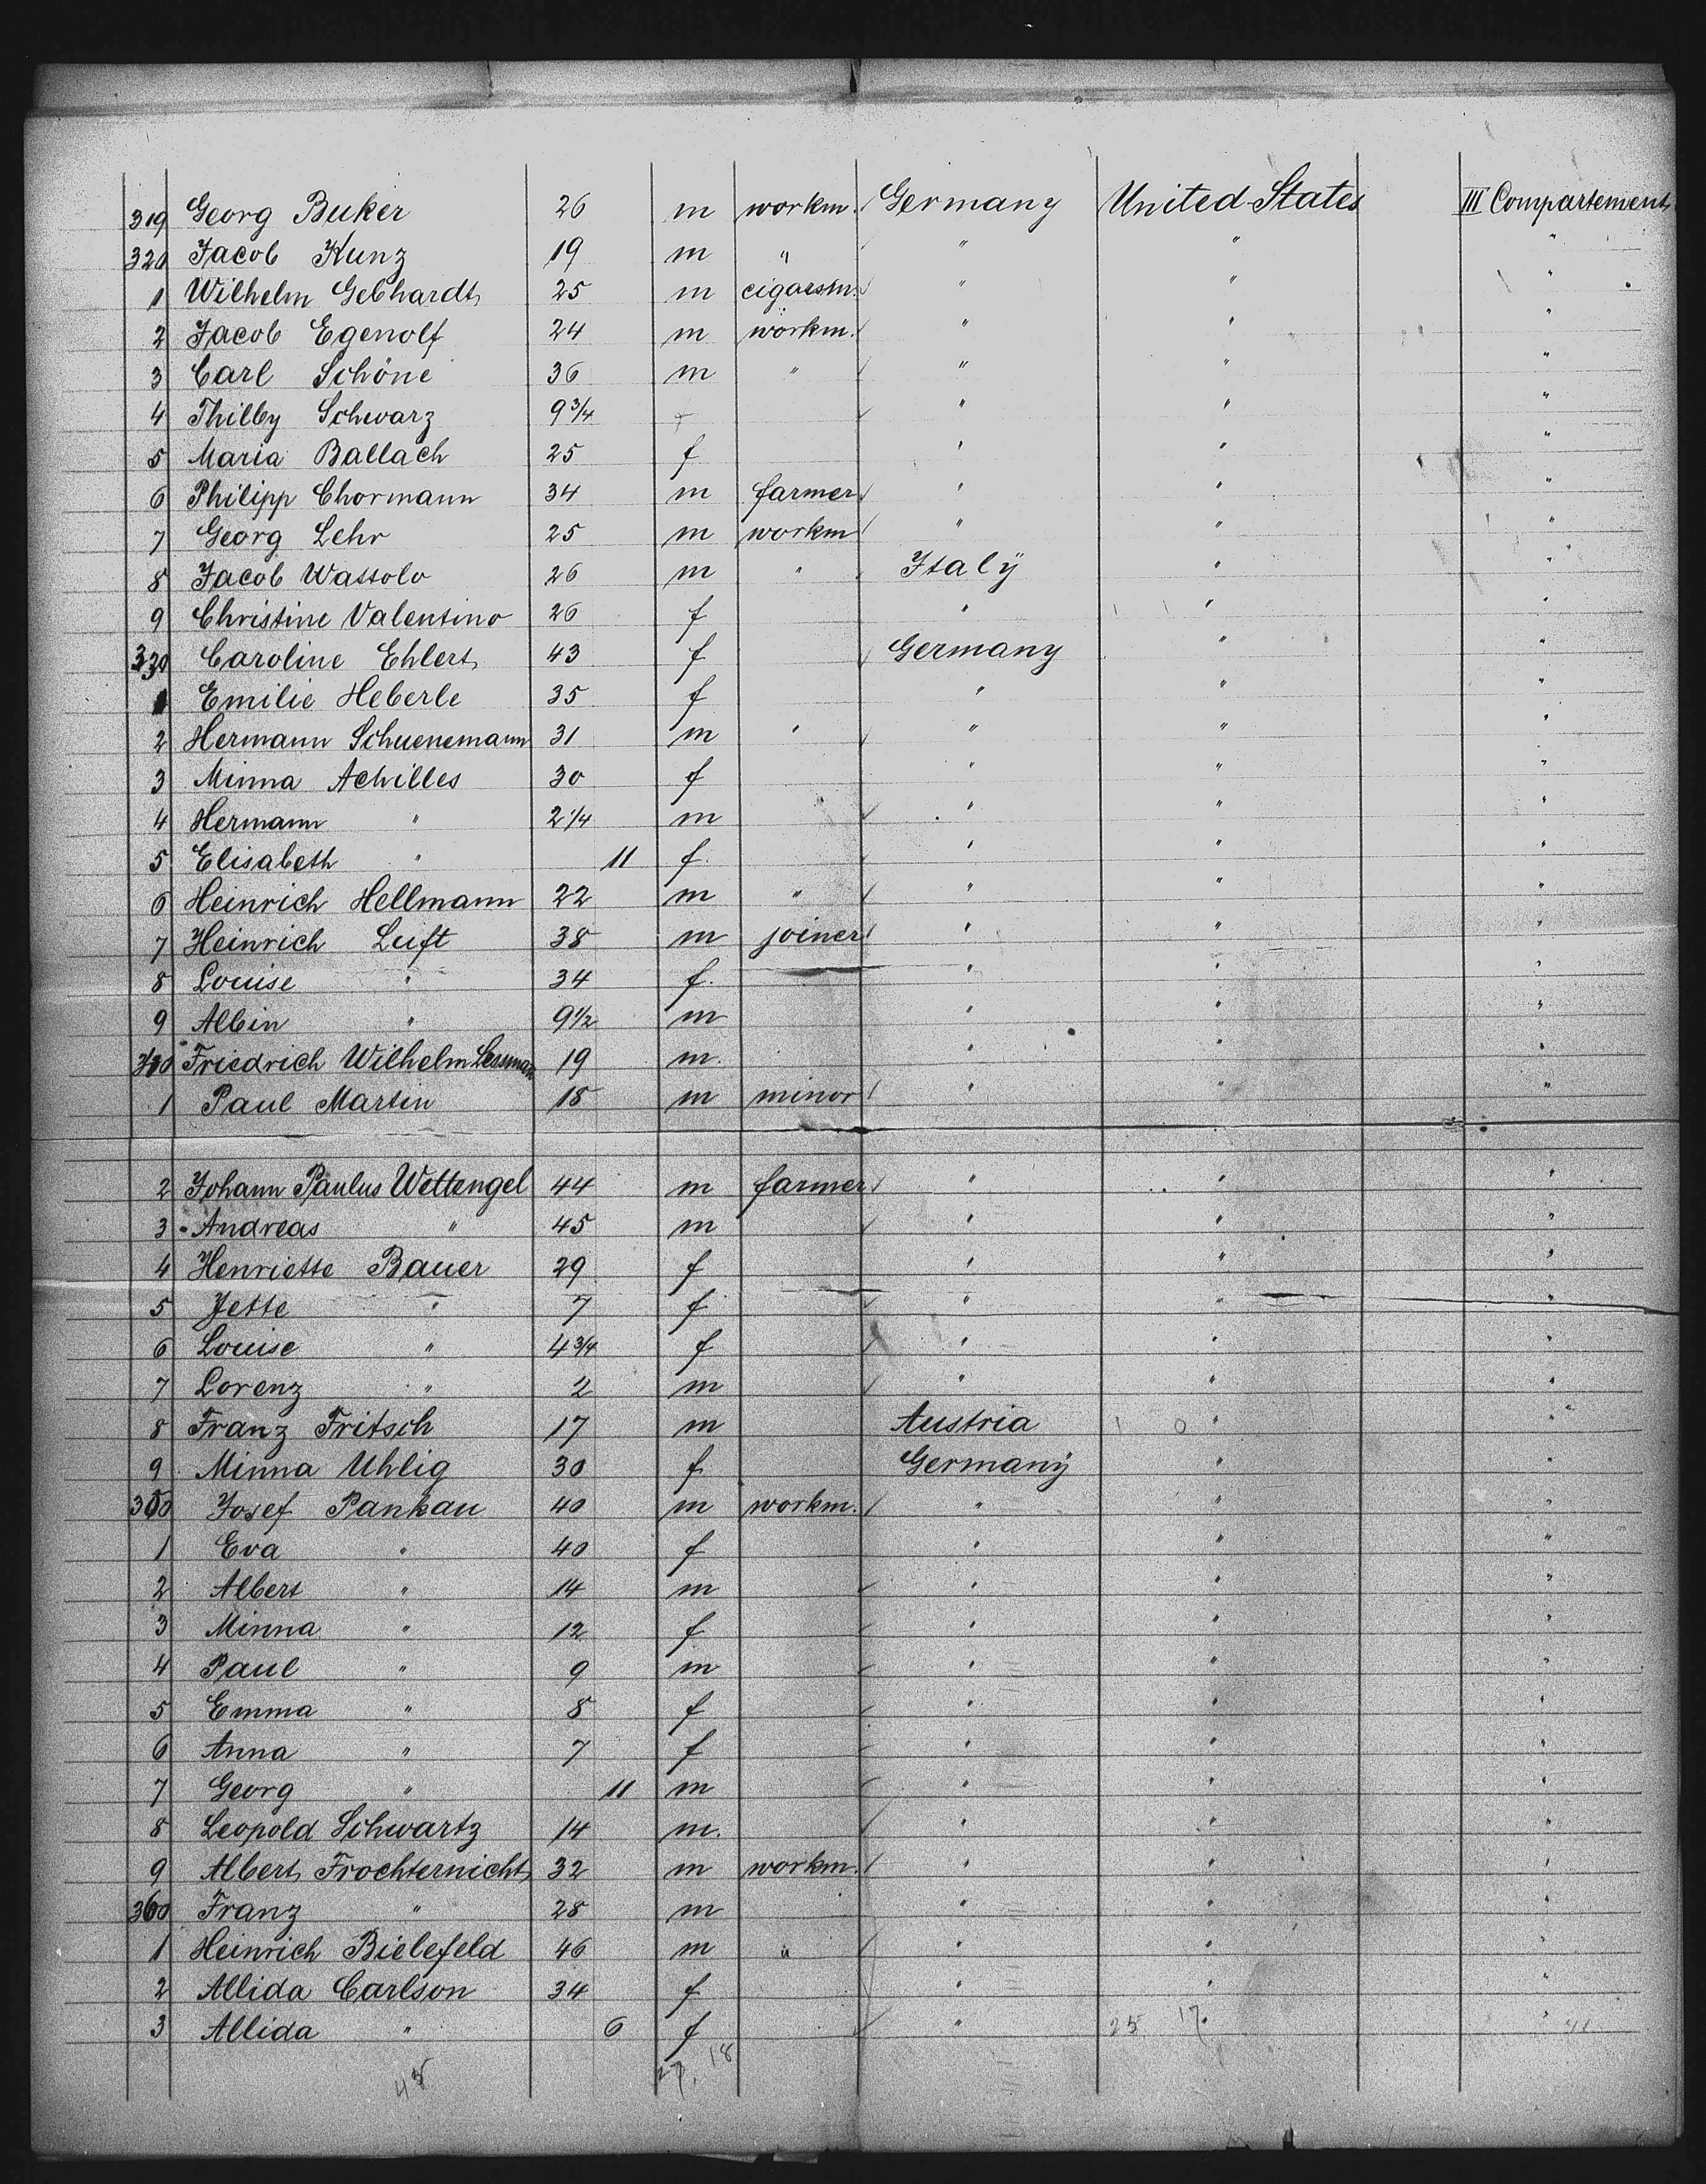 319 Georg Buker 26 m workm. Germany United States III Compartement
320 Jacob Kunz 19 m " " " "
1 Wilhelm Gebhardt 25 m cigarsm. " " "
2 Jacob Egenolf 24 m workm. " " "
3 Carl Schöne 36 m " " " "
4 Thilby Schwarz 9 3/4 f " " "
5 Maria Ballach 25 f " " "
6 Philipp Chormann 34 m farmer " " "
7 Georg Lehr 25 m workm " " "
8 Jacob Wassolo 26 m " Italy " "
9 Christine Valentino 26 f " " "
330 Caroline Ehlert 43 f Germany " "
1 Emilie Heberle 35 f " " "
2 Hermann Schuenemann 31 m " " " "
3 Minna Achilles 30 f " " "
4 Hermann " 2 1/4 m " " "
5 Elisabeth " 11 f. " " "
6 Heinrich Hellmann 22 m " " " "
7 Heinrich Luft 38 m joiner " " "
8 Louise " 34 f. " " "
9 Albin " 9 1/2 m " " "
340 Friedrich Wilhelm Lessman 19 m. " " "
1 Paul Martin 18 m minor " " "
2 Johann Paulus Wettengel 44 m farmer " " "
3 Andreas " 45 m " " "
4 Henriette Bauer 29 f " " "
5 Jette " 7 f " " "
6 Louise " 4 3/4 f " " "
7 Lorenz " 2 m " " "
8 Franz Fritsch 17 m Austria 1 0 " "
9 Minna Uhlig 30 f Germany " "
350 Josef Pankau 40 m workm. " " "
1 Eva " 40 f " " "
2 Albert " 14 m " " "
3 Minna " 12 f " " "
4 Paul " 9 m " " "
5 Emma " 8 f " " "
6 Anna " 7 f " " "
7 Georg " 11 m " " "
8 Leopold Schwartz 14 m. " " "
9 Albert Frochternicht 32 m workm. " " "
360 Franz " 28 m " " "
1 Heinrich Bielefeld 46 m " " " "
2 Allida Carlson 34 f " " "
3 Allida " 6 f " 25 17 " "
45 27. 18